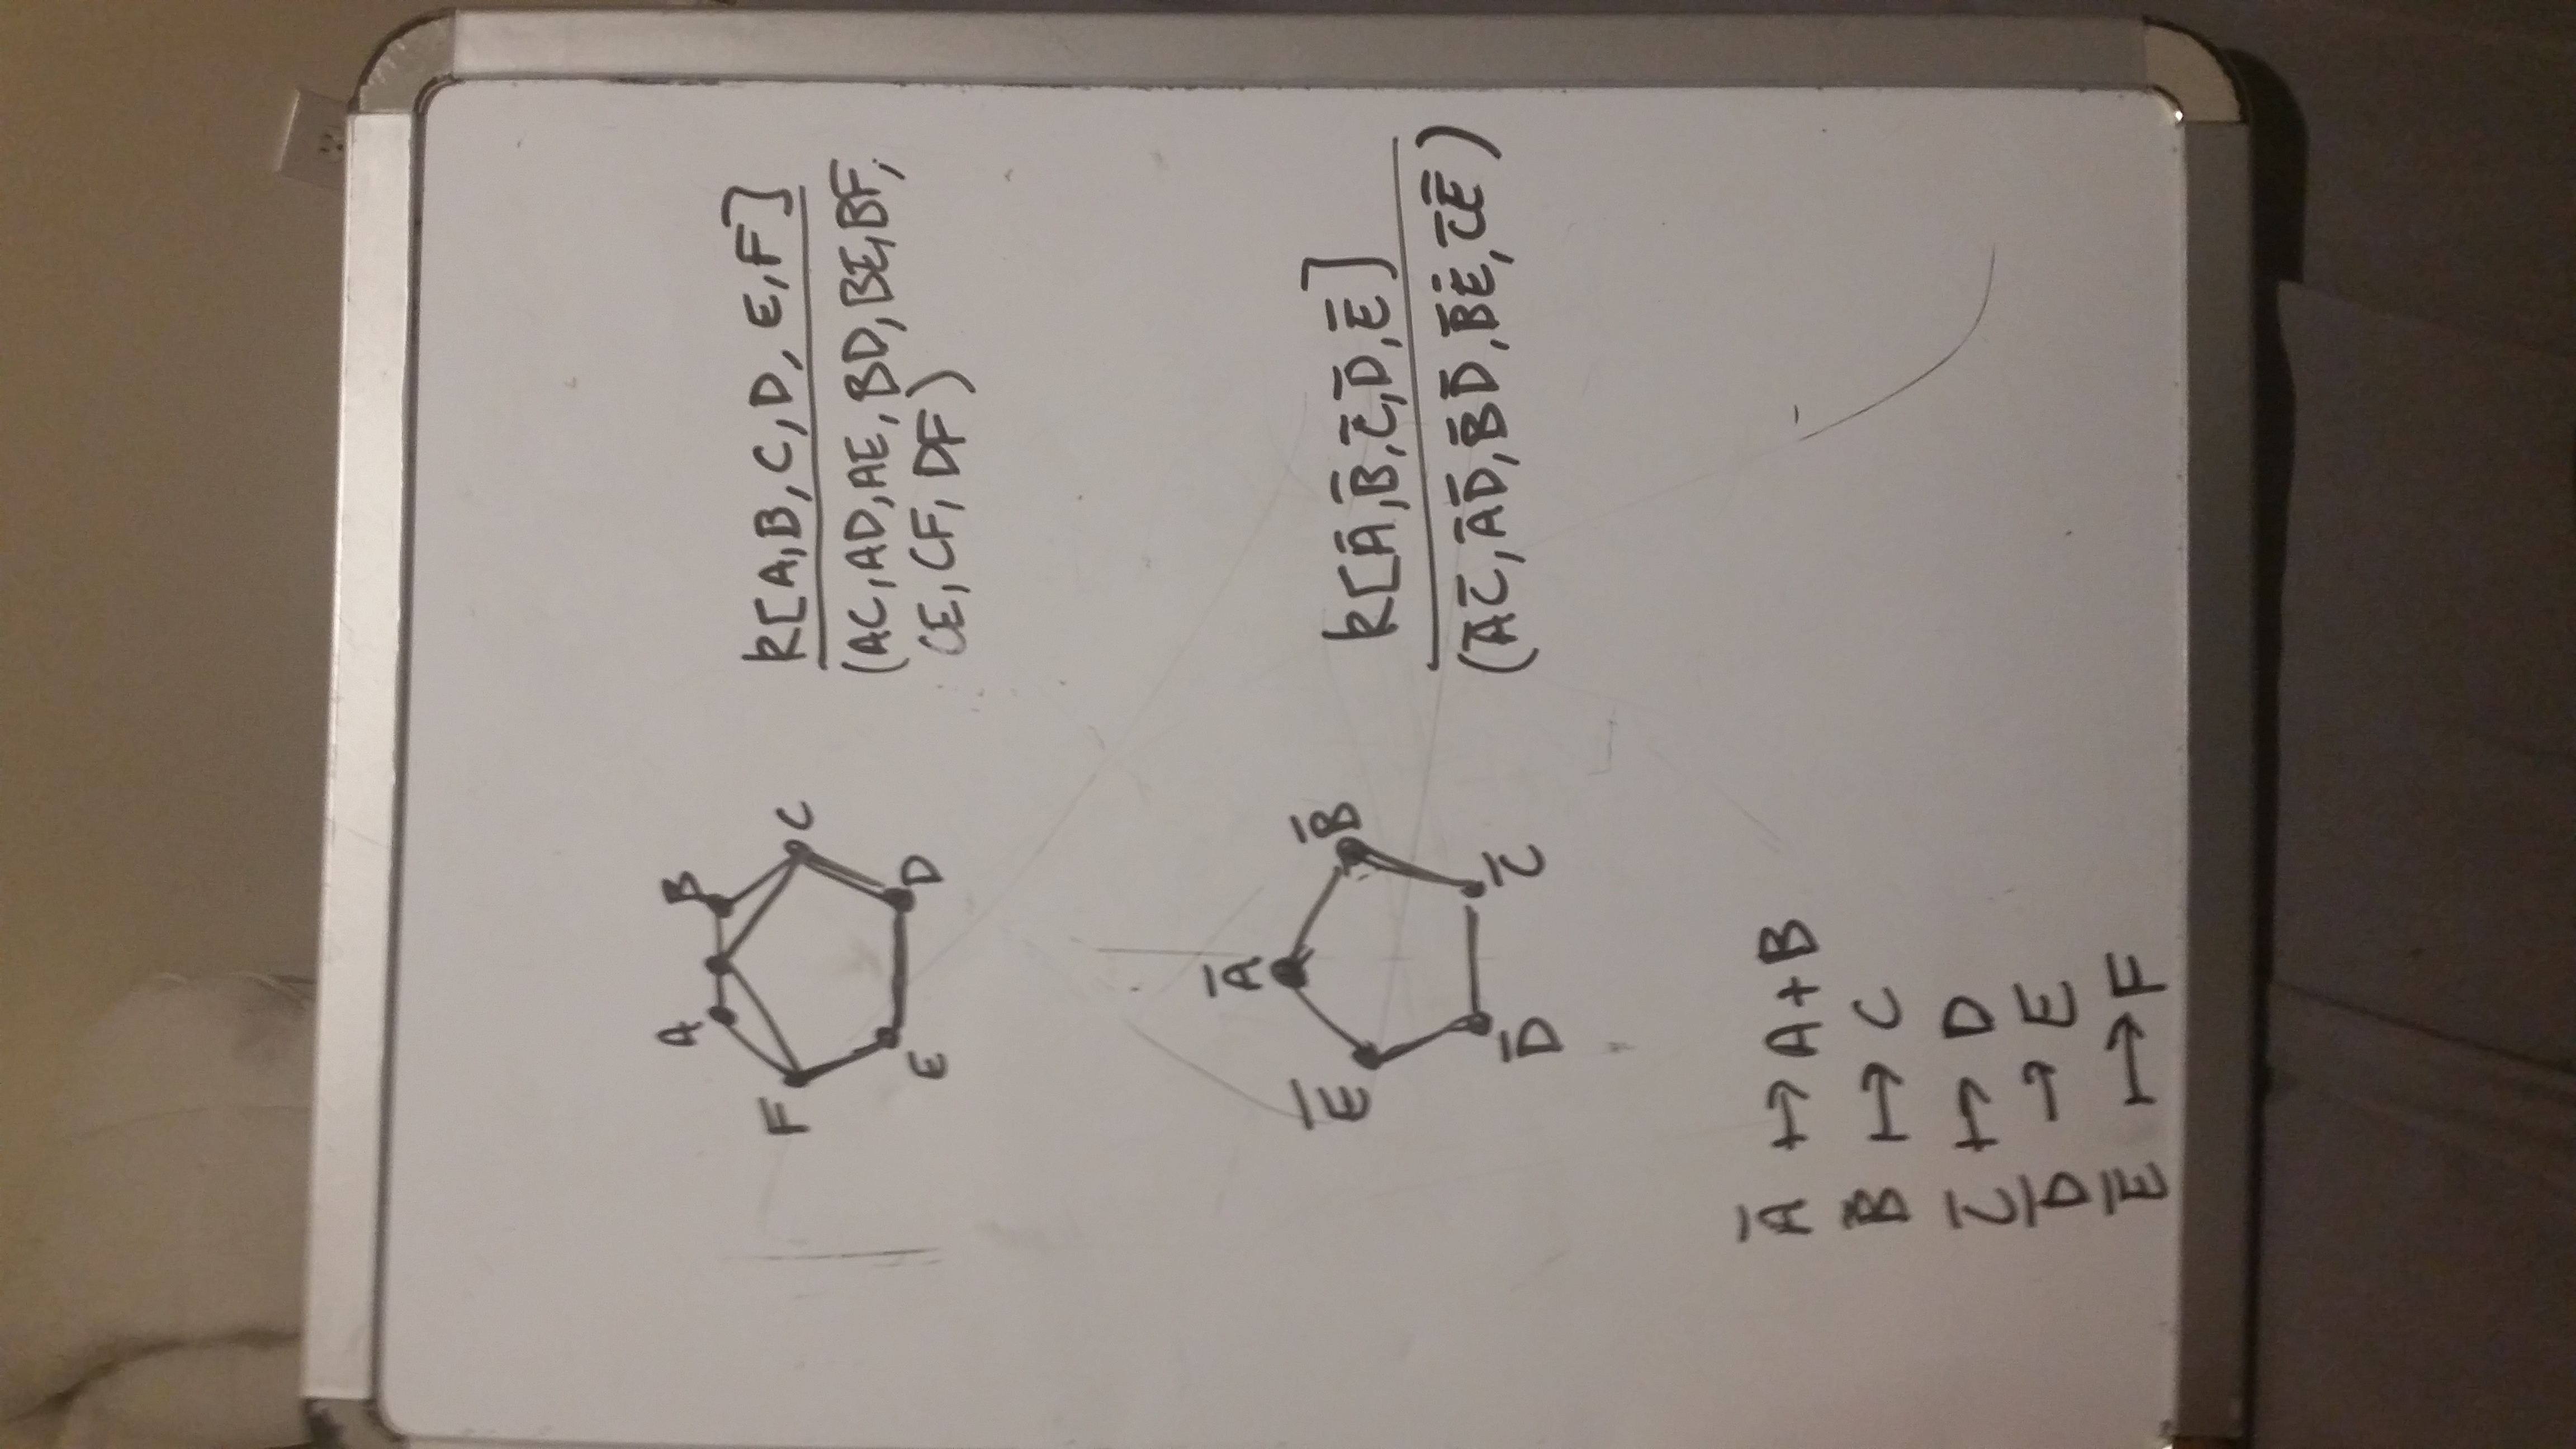 A B
F C
E D
k[A,B,C,D,E,F]
(AC,AD,AE,BD,BE,BF,
CE,CF,DF)
Ā
Ē B̄
D̄ C̄
k[Ā,B̄,C̄,D̄,Ē]
(ĀC̄,ĀD̄,B̄D̄,B̄Ē,C̄Ē)
Ā ↦ A+B
B̄ ↦ C
C̄ ↦ D
D̄ → E
Ē ↦ F